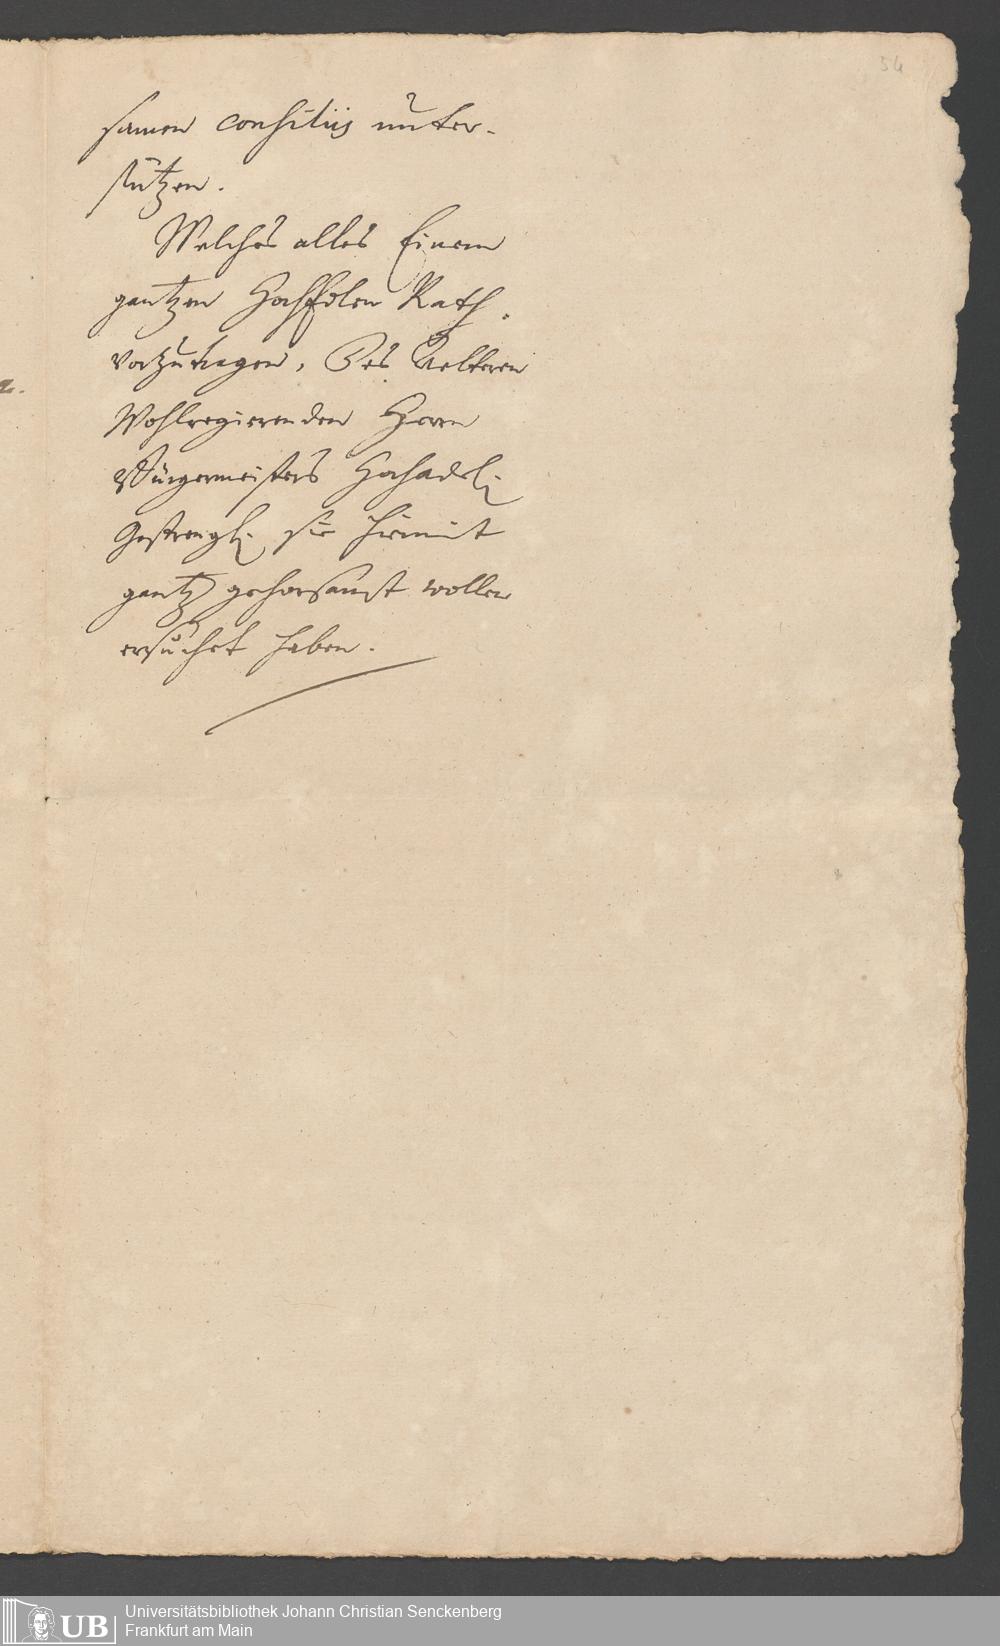 54
samen consiliis unter-
stützen.
Welches alles Einem
gantzen HochEdlen Rath
vorzutragen, Des Aelteren
Wohlregierenden Herrn
Bürgermeisters Hochadel.
Gestrengl. sie hiemit
gantz gehorsamst wollen
ersuchet haben.
UB
Universitätsbibliothek Johann Christian Senckenberg
Frankfurt am Main